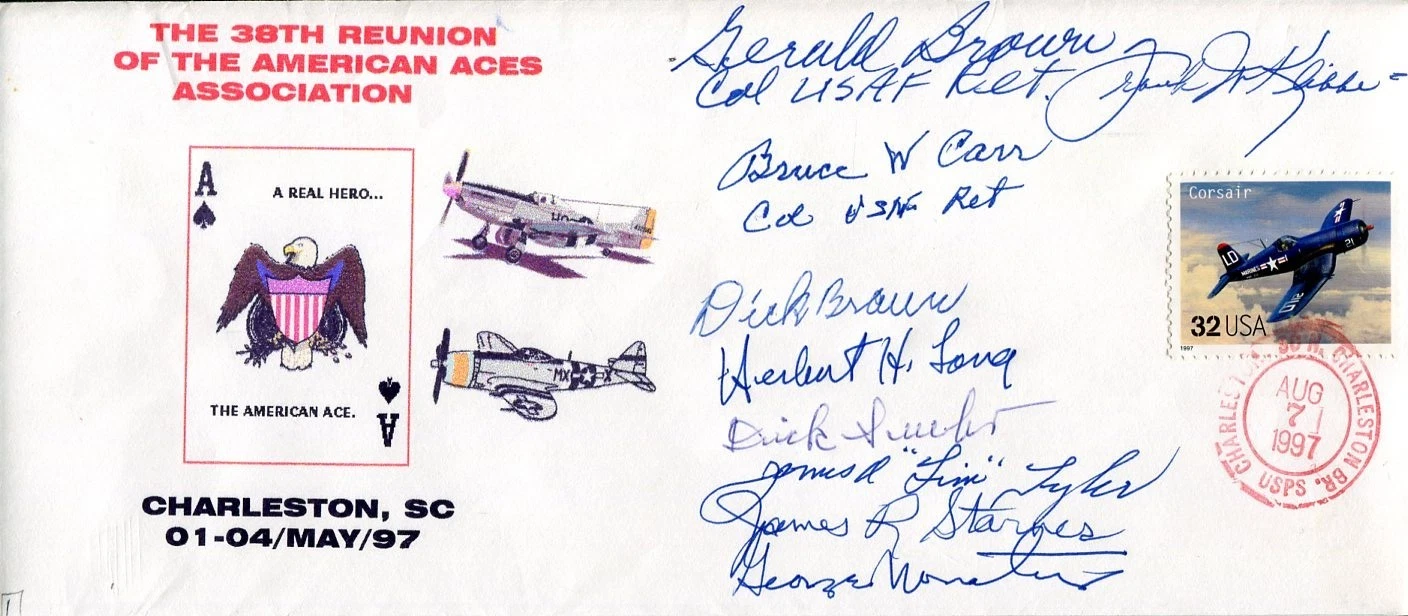 THE 38TH REUNION
OF THE AMERICAN ACES
ASSOCIATION
A
A REAL HERO...
THE AMERICAN ACE.
A
CHARLESTON, SC
01-04/MAY/97
HO
MX X
Gerald Brown
Col USAF Ret.
Frank W Klibbe
Bruce W Carr
Col USAF Ret
Dick Brown
Herbert H. Long
Dick
James "Jim" Tyler
James R Starnes
George
Corsair
LD
MARINES
21
LD
32 USA
1997
CHARLESTON BR.
AUG
7
1997
USPS.